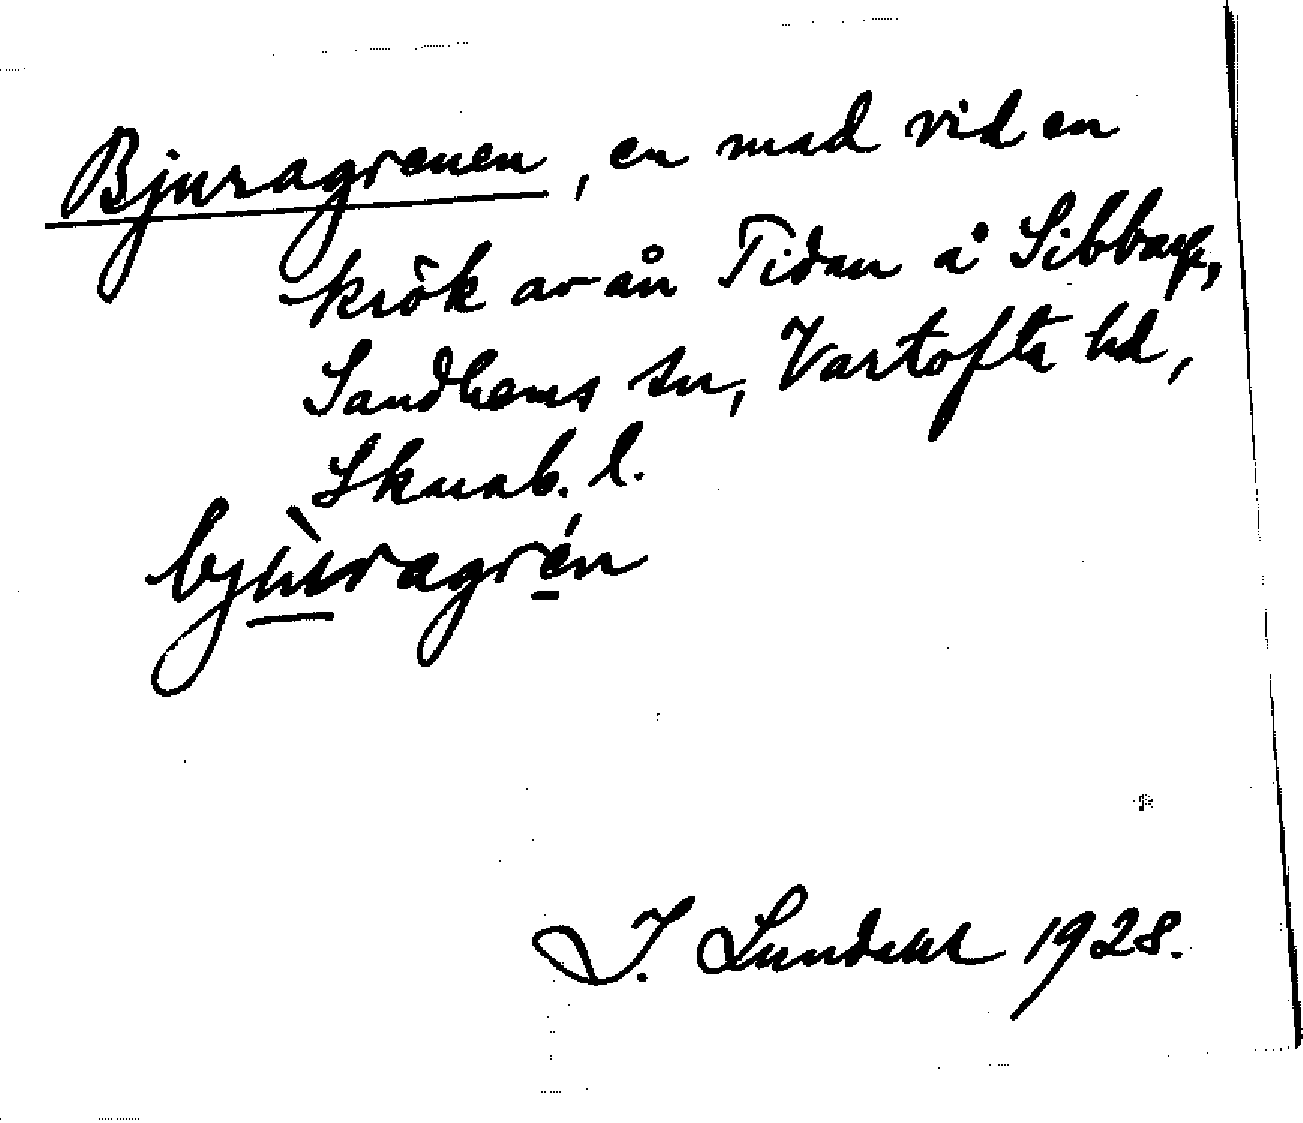 Bjuragrenen, en mad vid en
krök av ån Tidan å Sibbarp,
Sandhems sn, Vartofta hd,
Skarab. l.
bjùragrén
I. Lundahl 1928.